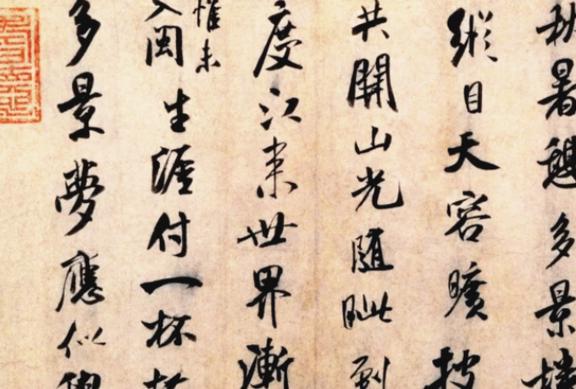 秋暑憩多景樓
縱目天容曠披
共開山光隨眦到
度江來世界漸
惟未
入閩生涯付一杯
多景夢應似